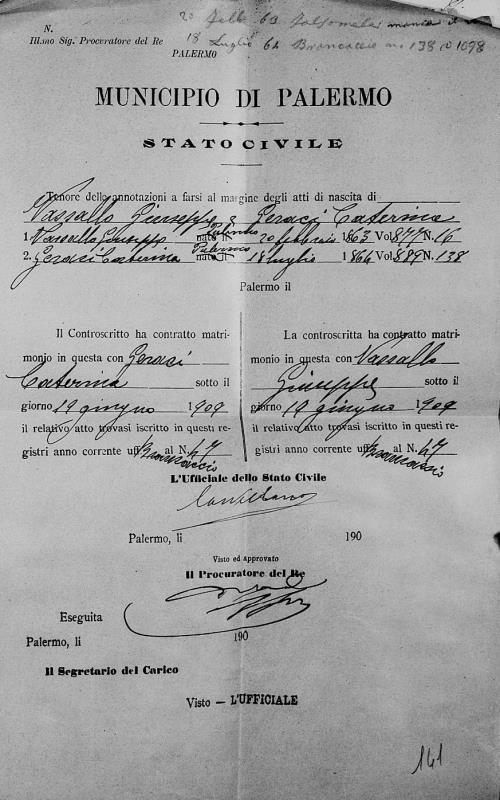 N.
20 Febb 63
Ill.mo Sig. Proceratore del Re
18 Luglio 64 Brancaccio no 138 1098
PALERMO
MUNICIPIO DI PALERMO
STATO CIVILE
Tenore delle annotazioni a farsi al margine degli atti di nascita di
Vassallo Giuseppe e Geraci Caterina
1. Vassallo Giuseppe nato il Palermo 20 febbraio 1863 Vol 877 N. 16
2. Geraci Caterina nata il Palermo 18 luglio 1864 Vol 889 N. 138
Palermo il
Il Controscritto ha contratto matri-
monio in questa con Geraci
Caterina sotto il
giorno 19 giugno 1909
il relativo atto trovasi iscritto in questi re-
gistri anno corrente uff. Brancaccio al N. 47
La controscritta ha contratto matri-
monio in questa con Vassallo
Giuseppe sotto il
giorno 19 giugno 1909
il relativo atto trovasi iscritto in questi re-
gistri anno corrente uff. Brancaccio al N. 47
L'Ufficiale dello Stato Civile
Palermo, li 190
Visto ed Approvato
Il Procuratore del Re
Eseguita
Palermo, li 190
Il Segretario del Carico
Visto — L'UFFICIALE
141